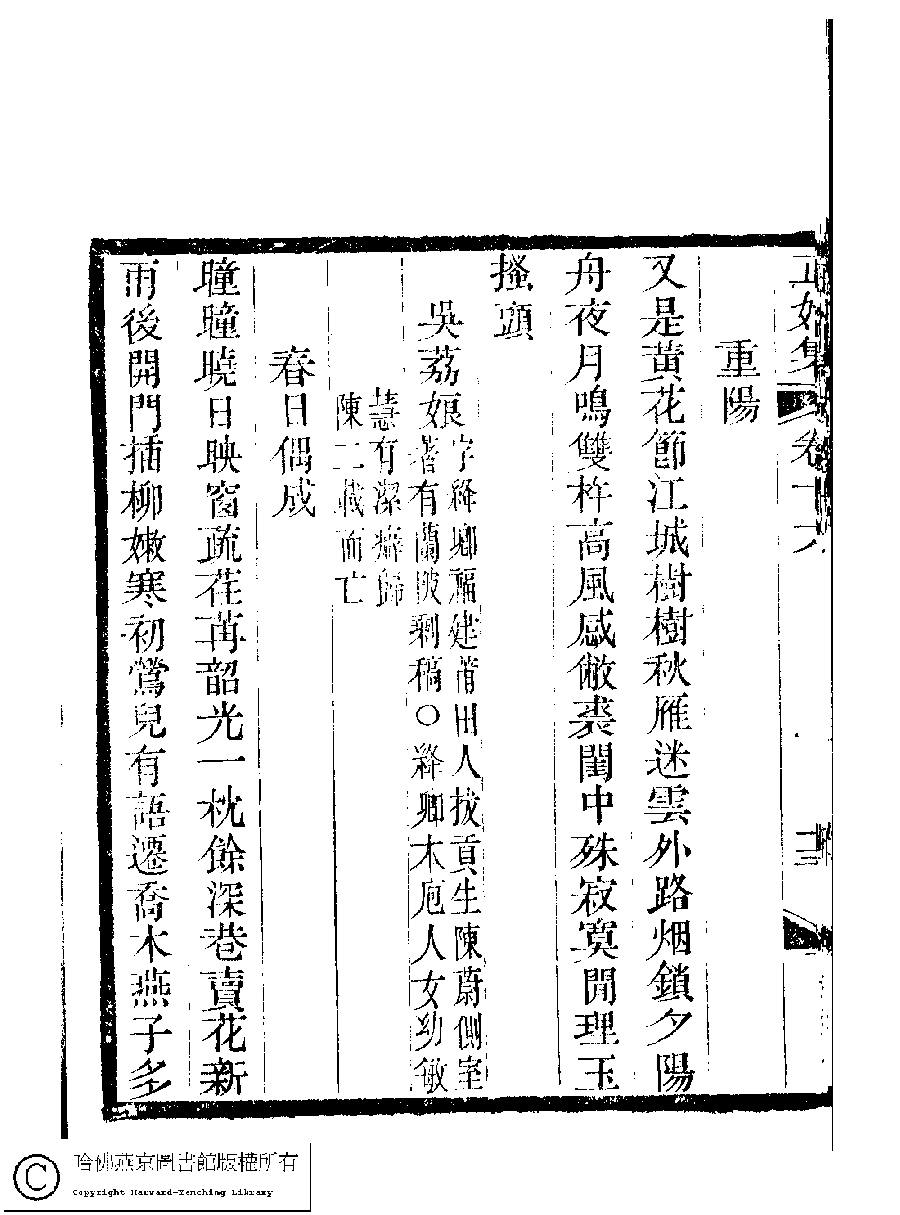 正始集 卷十六
重陽
又是黄花節江城樹樹秋雁迷雲外路烟鎖夕陽
舟夜月鳴雙杵高風感敝裘閨中殊寂寞閒理玉
搔頭
吳荔娘 字絳鄉福建莆田人拔貢生陳蔚側室
著有蘭陂剩稿○絳卿本庖人女幼敏
慧有潔癖歸
陳二載而亡
春日偶成
曈曈曉日映窗疏荏苒韶光一枕餘深巷賣花新
雨後開門插柳嫩寒初鶯兒有語遷喬木燕子多
哈佛燕京圖書館版權所有
Copyright Harvard-Yenching Library